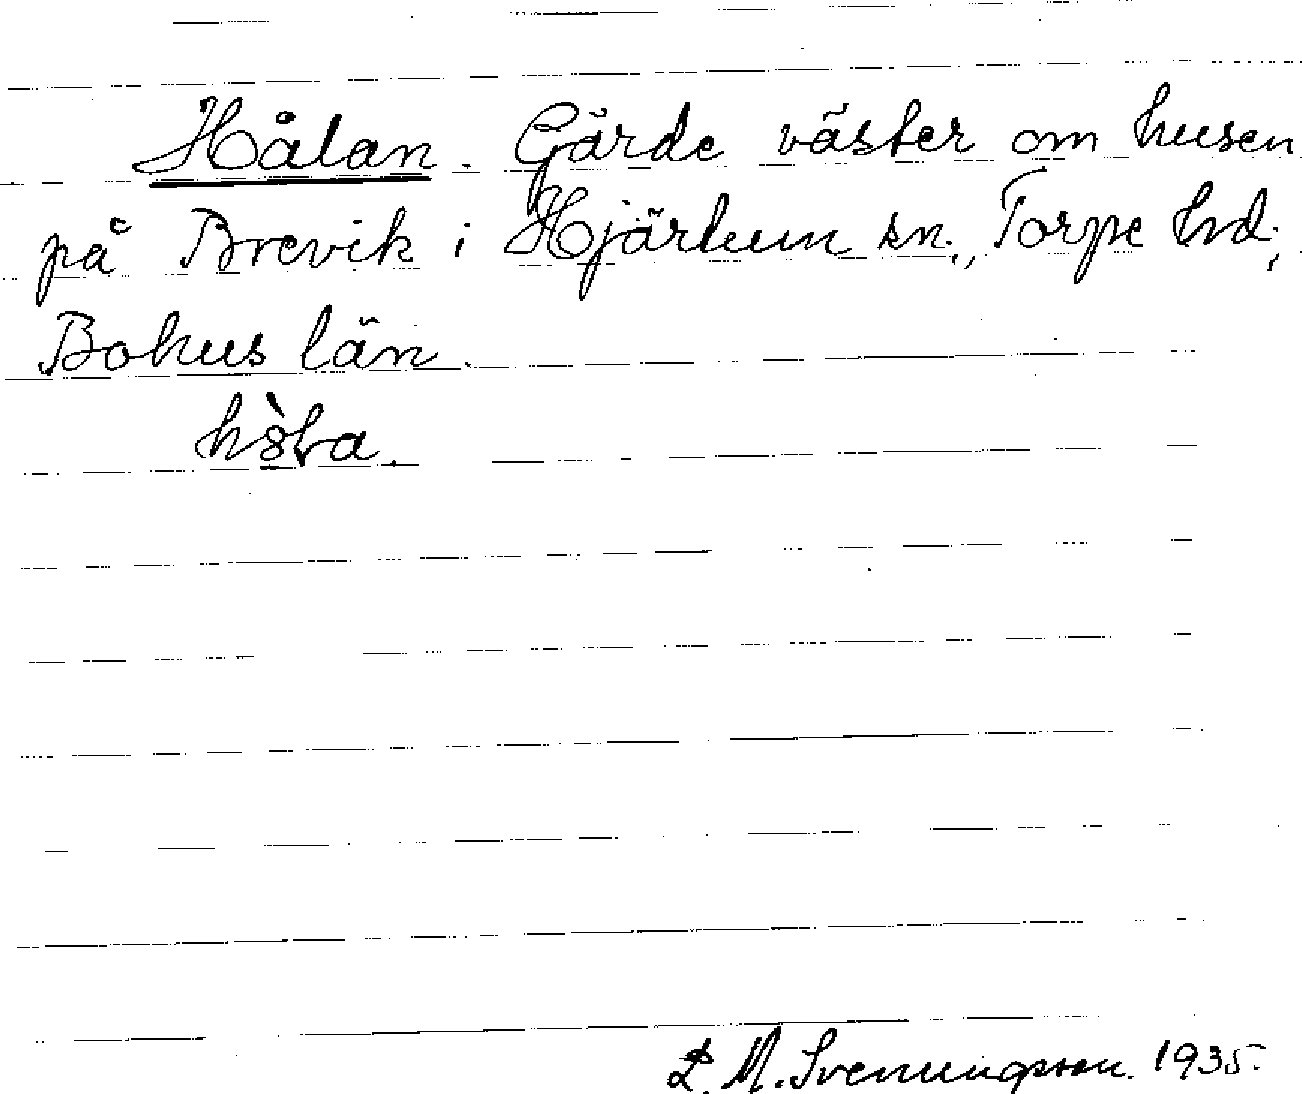 Hålan. Gärde väster om husen
på Brevik i Hjärtum sn., Torpe hd.,
Bohus län.
L. M. Svenungsson. 1935.